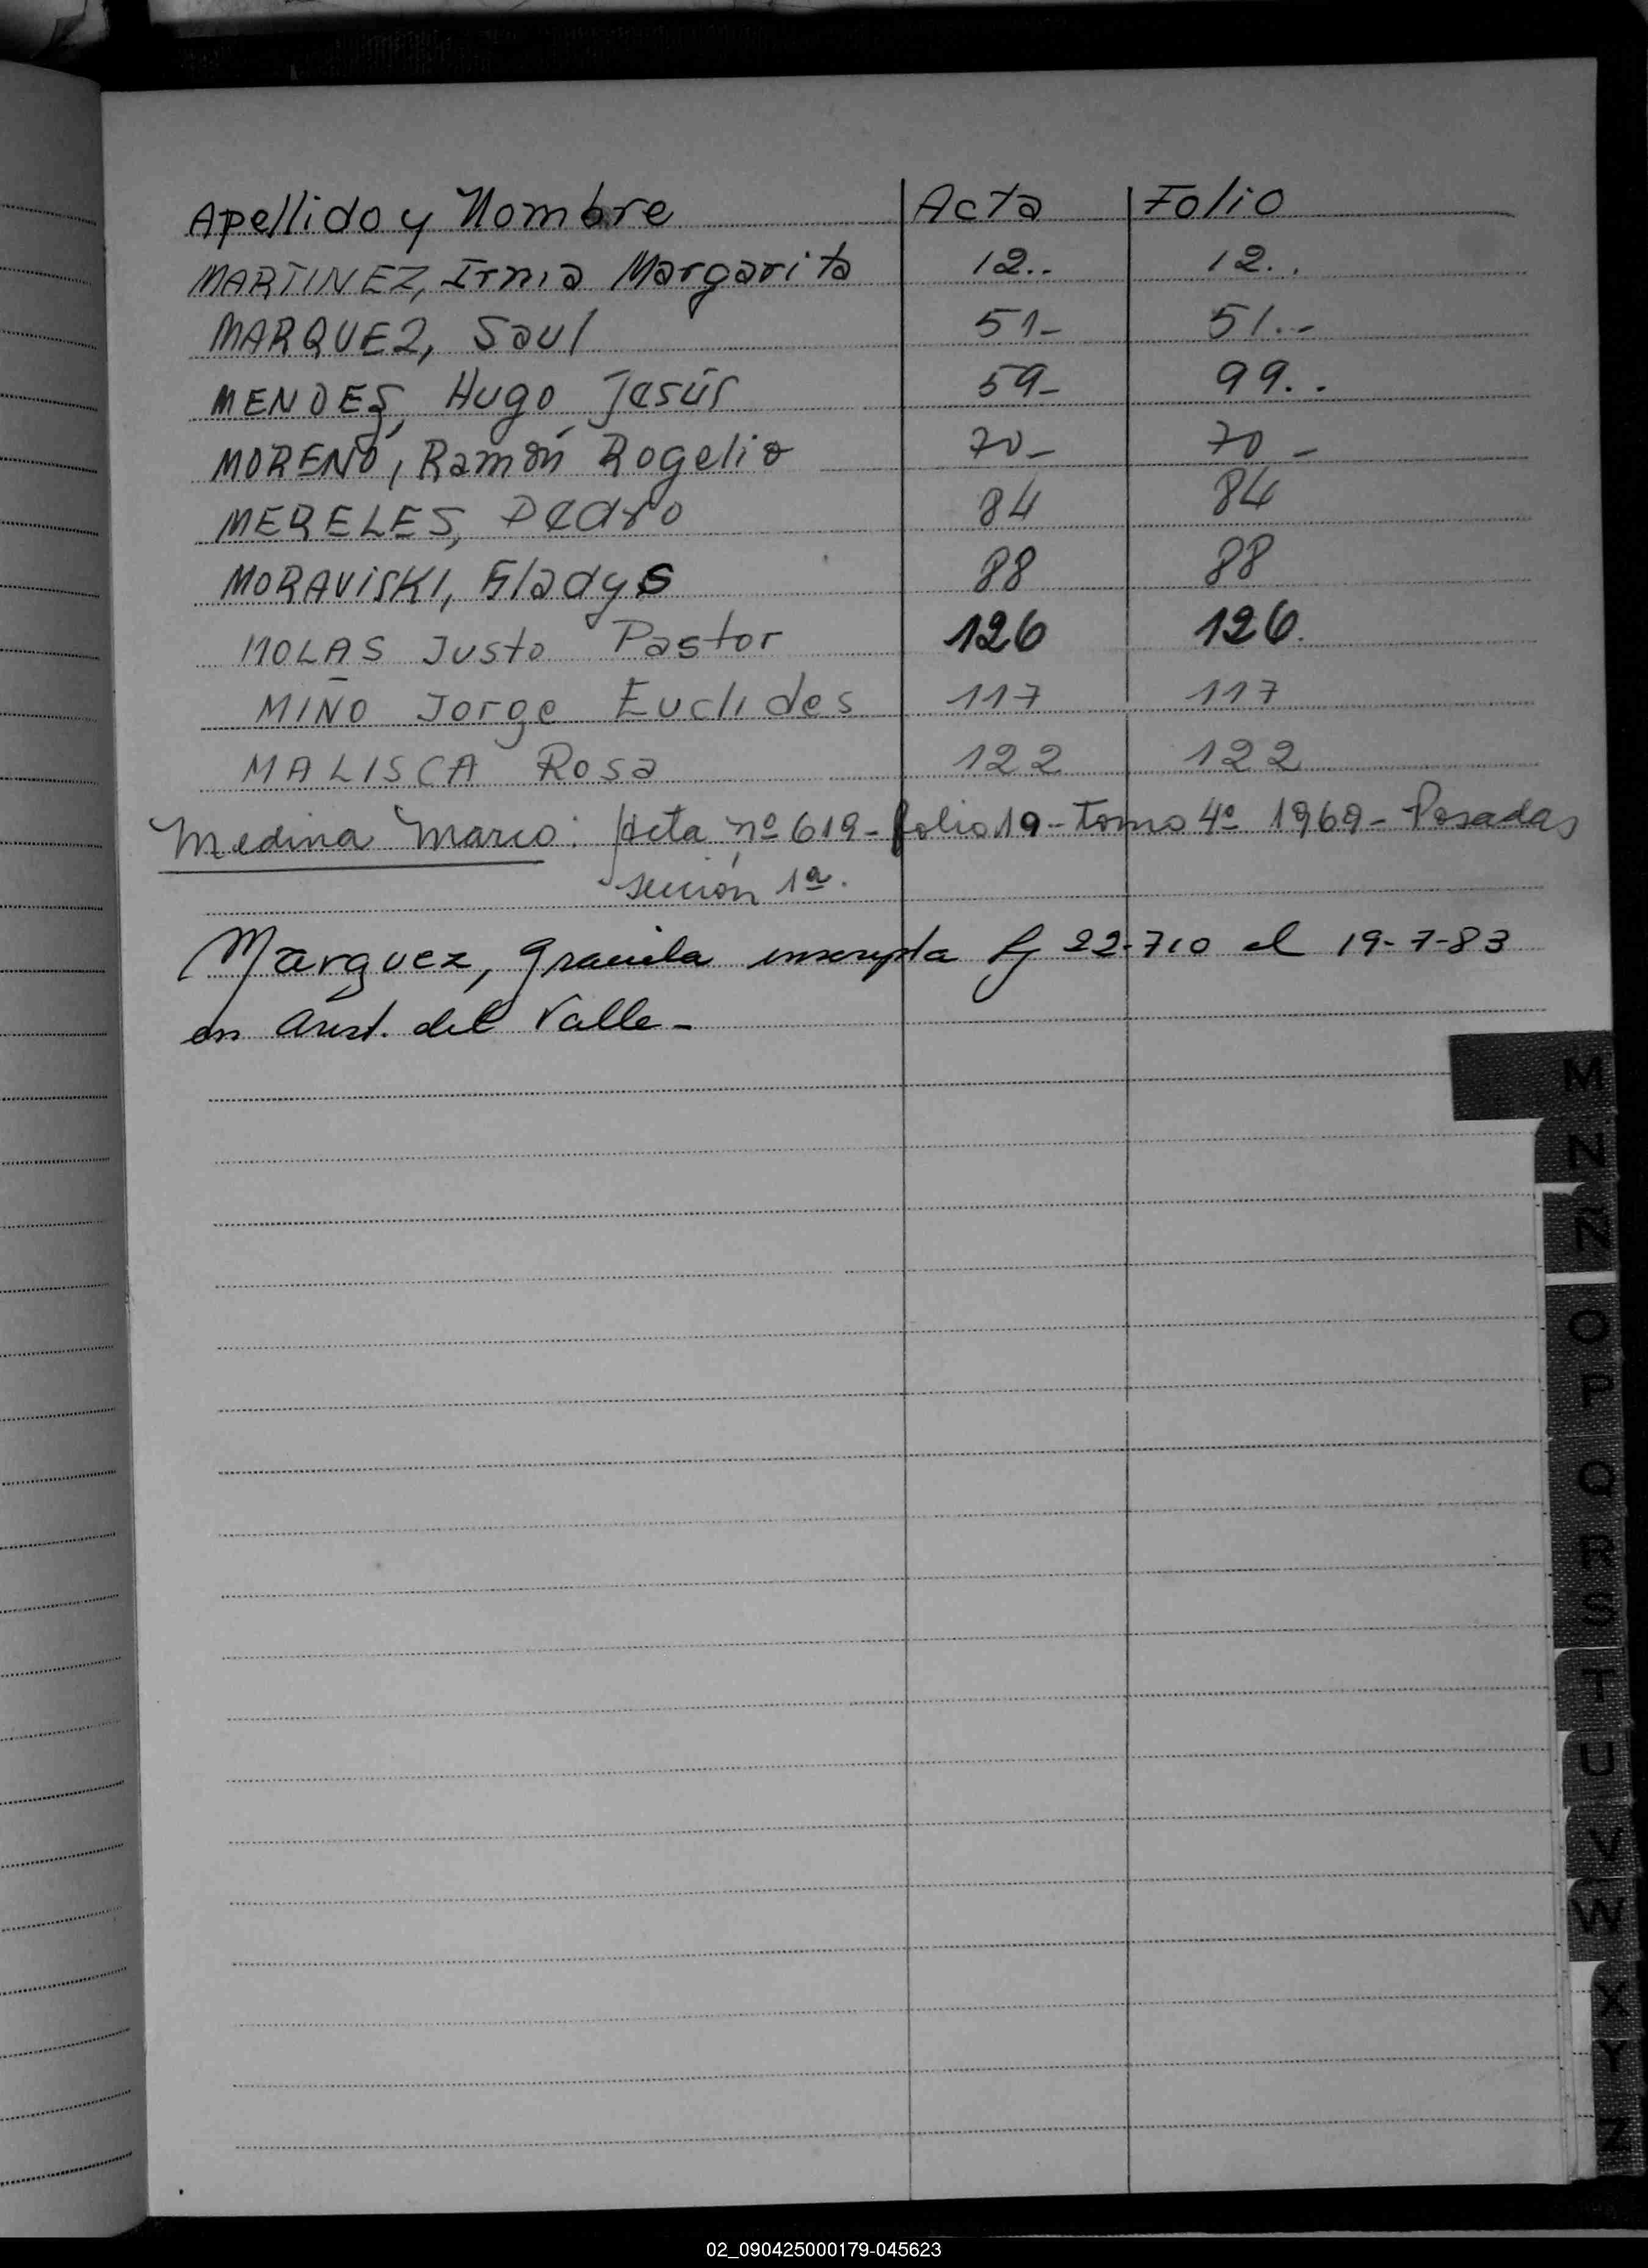 Apellido y Nombre Acta Folio
MARTINEZ, Irma Margarita 12.. 12..
MARQUEZ, Saul 51- 51.-
MENDES, Hugo Jesús 59- 99..
MORENO, Ramón Rogelio 70- 70-
MERELES, Pedro 84 84
MORAVISKI, Gladys 88 88
MOLAS Justo Pastor 126 126.
MIÑO Jorge Euclides 117 117
MALISCA Rosa 122 122
Medina Marco: Acta nº 619- folio 19- Tomo 4º 1969- Posadas
sección 1ª.
Marquez, Graciela inscripta 22.710 el 19-7-83
en Arist. del Valle-
M
N
Ñ
O
P
Q
R
S
T
U
V
W
X
Y
Z
02_090425000179-045623